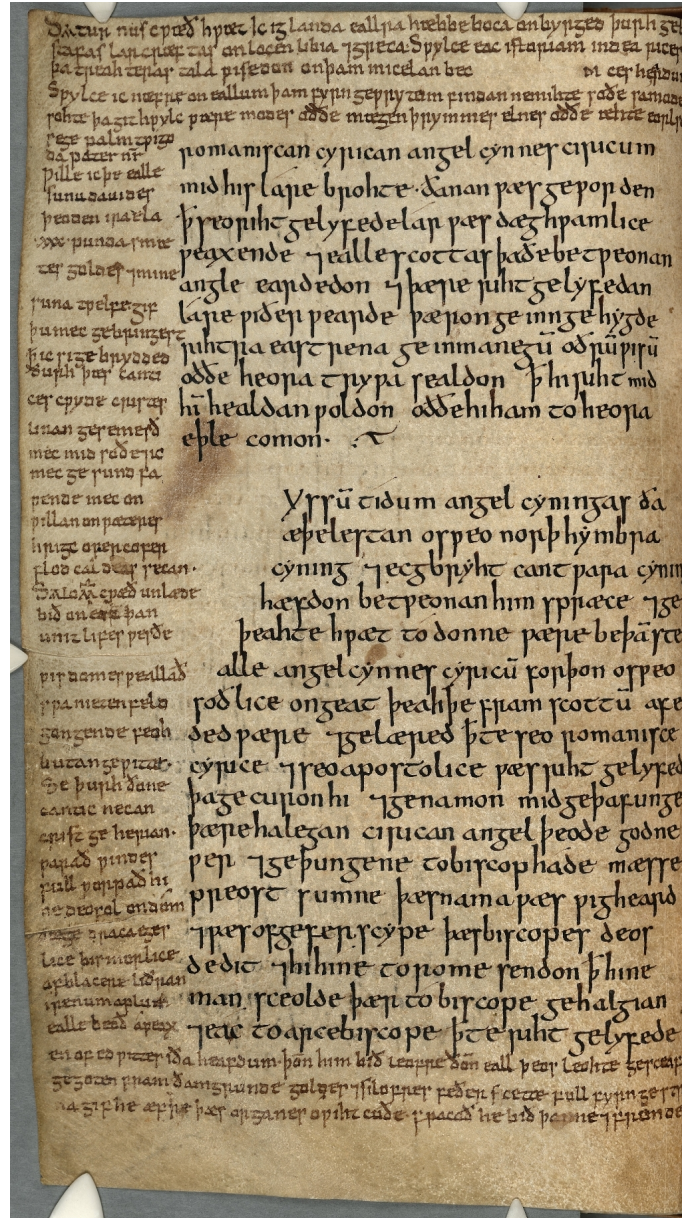 Saturnus cƿæð hƿæt Ic iglanda eallra hæbbe boca onbyrged þurh ge
stafas larcræftas onlocen libia ⁊greca. Sƿylce eac istoriam indea rices
þa treahteras tala ƿisedon on þam micelan bec m ces heardum
Sƿylce ic næfre on eallum þam fyrngeƿrytum findan ne mihte soðe samode
sohte þa git hƿylc ƿære modes oððe mægenþrymmes elnes oððe æhte
se ge palmtƿigo
da pater nr
ƿille ic þe ealle
sunu dauides
þeoden israela
xxx punda smæ
tes goldes ⁊mine
suna tƿelfe gif
þu mec gebringest
þ ic si gebrydded
ðurh þæs canti
ces cƿyde cristes
linan gesemesð
mec mid soðe ⁊ic
mec gesund fa
ƿende mec on
ƿillan on ƿæteres
hrigc ofer cofer
flod caldeas secan.
Salom cƿæð unlæde
bið on eorþan
unit lifes ƿeste
ƿisdomes ƿeallað
sƿa nieten feld
gongende feoh
butan geƿitte.
Se þurh ðone
cantic ne can
crist geherian.
ƿarað ƿindes
full ƿorpað hi
ne deofol on dom
dæge draca eges
lice bismorlice
of blacere liðran
irenum aplum
ealle beoð aƿeax
romaniscan cyrican angel cynnes ciricum
mid his lare brohte. ðanan ƿæs geƿorden
þ seo riht gelyfede lar ƿæs dæghƿamlice
ƿeaxende ⁊ealle scottas þa ðe betƿeonan
angle eardedon ⁊þære riht gelyfedan
lare ƿiðer ƿearde ƿæron ge inngehygde
rihtra eastrena ge in manegū oðrū ƿisū
oððe heora trypa sealdon þ hi riht mid
hī healdan ƿoldon oððe hi ham to heora
eþle comon.
Yssū tidum angel cyningas ða
æþelestan ospeo norþhymbra
cyning ⁊ecgbryht cantƿara cynin
hæfdon betƿeonan him spræce ⁊ge
þeahte hƿæt to donne ƿære be þā ste
alle angel cynnes cyricū forþon ospeo
soðlice ongeat þeah þe fram scottū afe
ded ƿære ⁊gelæred þte seo romanisce
cyrice ⁊seo apostolice ƿæs riht gelyfed
þa gecuron hi ⁊genamon mid geþafunge
þære halegan cirican angel þeode godne
ƿer ⁊geþungene to biscophade mæsse
preost sumne þæs nama ƿæs ƿigheard
⁊ƿes of geferscype þæs biscopes deos
dedit ⁊hi hine to rome sendon þ hine
man sceolde þær to biscope gehalgian
⁊eac to arcebiscope þte riht gelyfede
en of edƿittes ⁊ða heardum. þon him bið leofre ðon eall þeos leohte gesceaft
gegoten fram ðam grunde goldes ⁊silofres feðer scette full fyrn gestr
na gif he æfre þæs organes oƿiht cuðe. fracað he bið þanne ⁊fremde